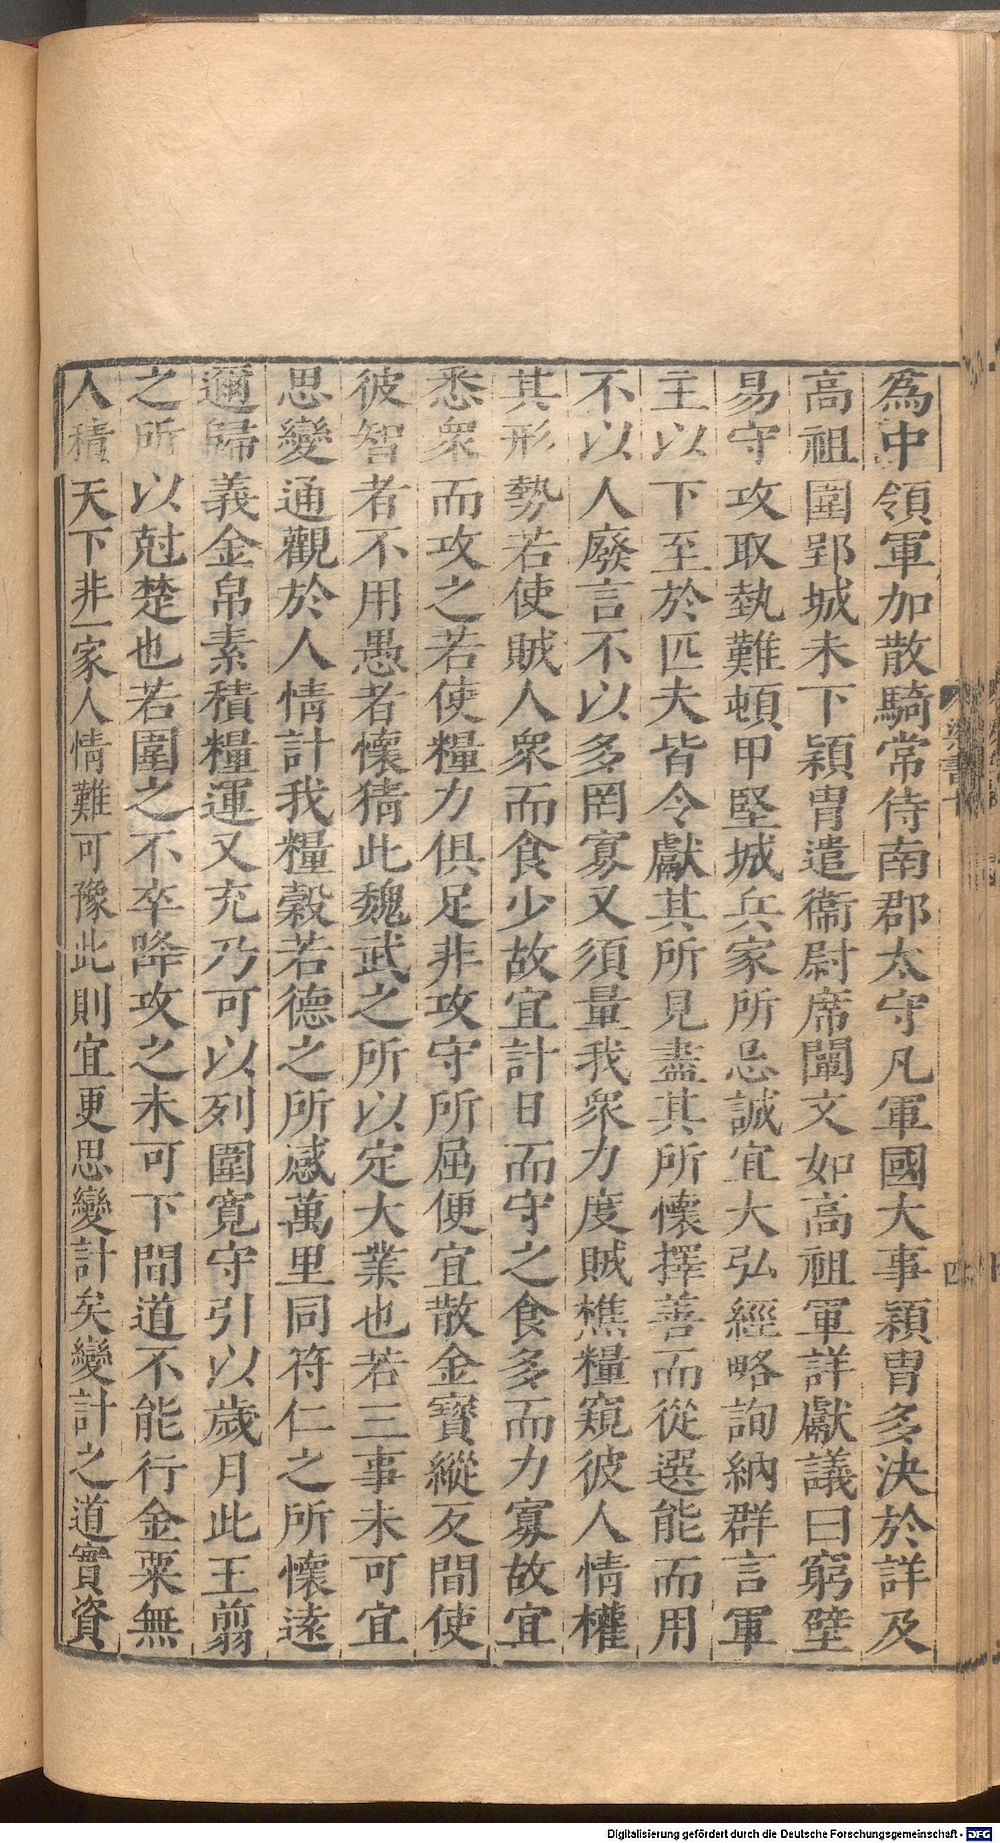 為中領軍加散騎常侍南郡太守凡軍國大事穎冑多決於詳及
高祖圍郢城未下穎冑遣衞尉席闡文如高祖軍詳獻議曰窮壁
易守攻取埶難頓甲堅城兵家所忌誠宜大弘經略詢納群言軍
主以下至於匹夫皆令獻其所見盡其所懷擇善而從選能而用
不以人廢言不以多罔寡又須量我衆力度賊樵糧窺彼人情權
其形勢若使賊人衆而食少故宜計日而守之食多而力寡故宜
悉衆而攻之若使糧力俱足非攻守所屈便宜散金寳縱反間使
彼智者不用愚者懷猜此魏武之所以定大業也若三事未可宜
思變通觀於人情計我糧穀若德之所感萬里同符仁之所懷遠
邇歸義金帛素積糧運又充乃可以列圍寛守引以歲月此王翦
之所以尅楚也若圍之不卒降攻之未可下間道不能行金粟無
人積天下非一家人情難可豫此則宜更思變計矣變計之道實資
四
Digitalisierung gefördert durch die Deutsche Forschungsgemeinschaft - DFG